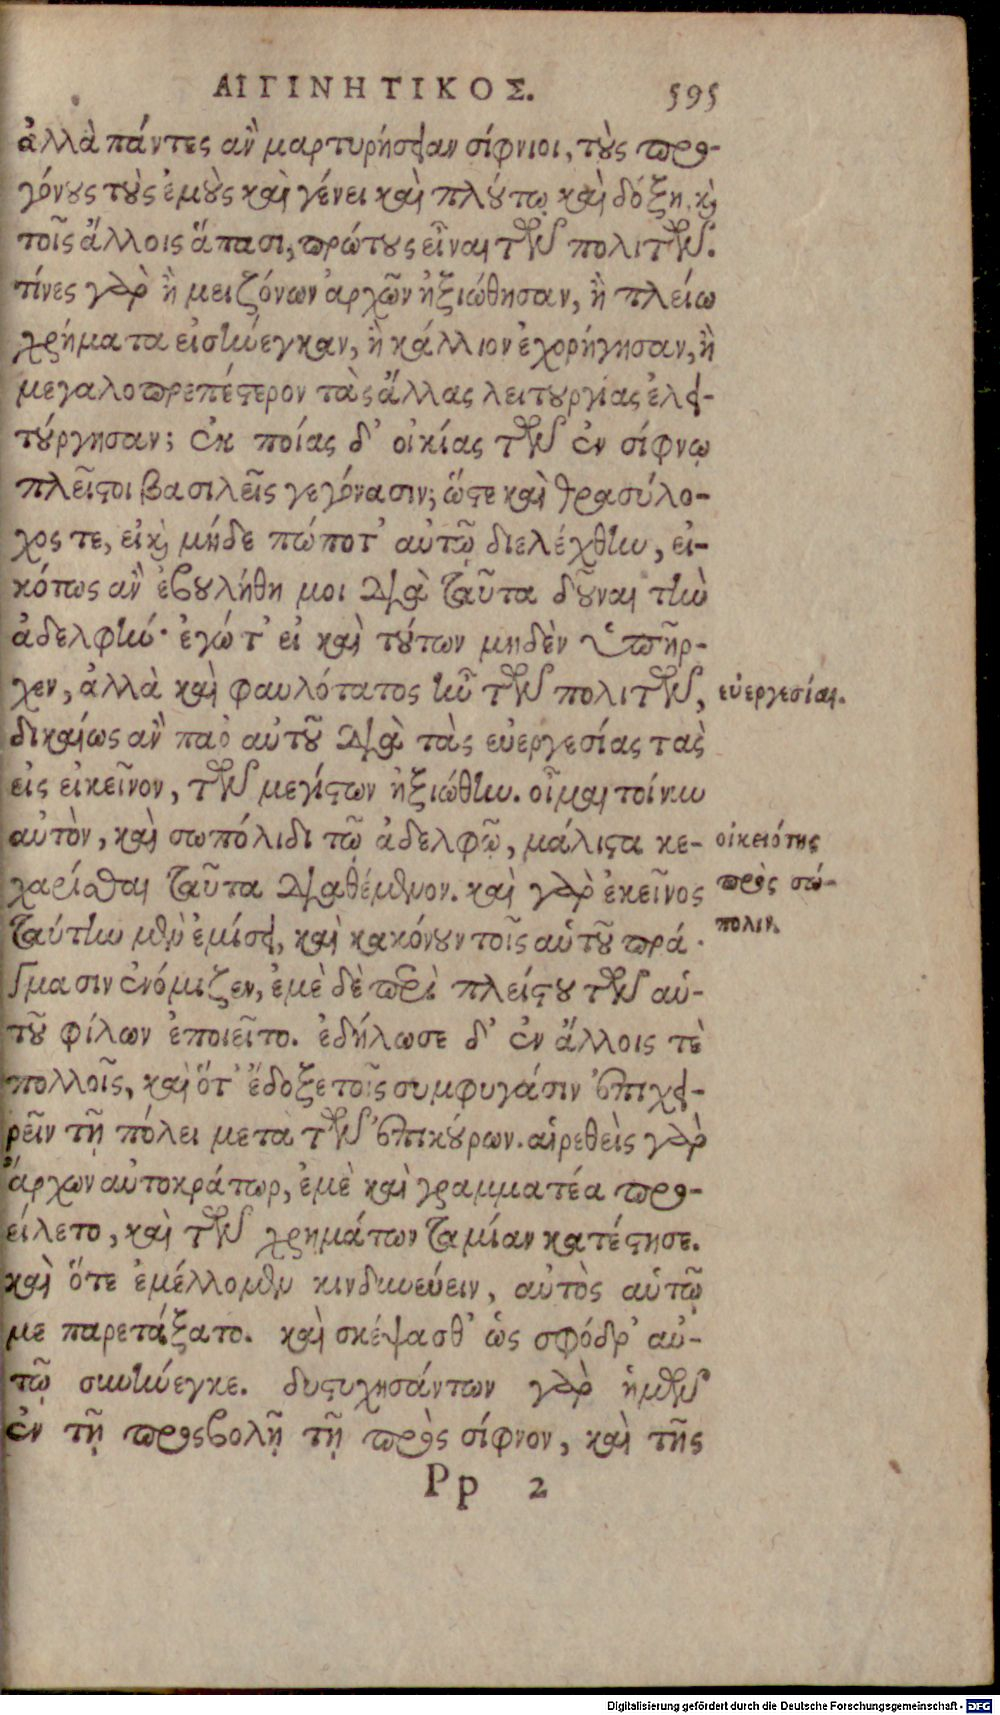 ΑΙΓΙΝΗΤΙΚΟΣ.
595
ἀλλὰ πάντες ἂν μαρτυρήσειαν σίφνιοι, τοὺς προ-
γόνους τοὺς ἐμοὺς καὶ γένει καὶ πλούτῳ καὶ δόξῃ, καὶ
τοῖς ἄλλοις ἅπασι, πρώτους εἶναι τῶν πολιτῶν.
τίνες γὰρ ἢ μειζόνων ἀρχῶν ἠξιώθησαν, ἢ πλείω
χρήματα εἰσήνεγκαν, ἢ κάλλιον ἐχορήγησαν, ἢ
μεγαλοπρεπέστερον τὰς ἄλλας λειτουργίας ἐλει-
τούργησαν; ἐκ ποίας δ' οἰκίας τῶν ἐν σίφνῳ
πλεῖστοι βασιλεῖς γεγόνασιν; ὥστε καὶ θρασύλο-
χος τε, εἰ καὶ μήδε πώποτ' αὐτῷ διελέχθην, εἰ-
κότως ἂν ἐβουλήθη μοι διὰ ταῦτα δοῦναι τὴν
ἀδελφήν· ἐγώ τ' εἰ καὶ τούτων μηδὲν ὑπῆρ-
χεν, ἀλλὰ καὶ φαυλότατος ἦν τῶν πολιτῶν,
δικαίως ἂν παρ' αὐτοῦ διὰ τὰς εὐεργεσίας τὰς
εἰς εἰκεῖνον, τῶν μεγίστων ἠξιώθην. οἶμαι τοίνυν
αὐτὸν, καὶ σωπόλιδι τῷ ἀδελφῷ, μάλιστα κε-
χαρίσθαι ταῦτα διαθέμενον. καὶ γὰρ ἐκεῖνος
ταύτην μὲν ἐμίσει, καὶ κακόνουν τοῖς αὑτοῦ πρά-
γμασιν ἐνόμιζεν, ἐμὲ δὲ περὶ πλείστου τῶν αὑ-
τοῦ φίλων ἐποιεῖτο. ἐδήλωσε δ' ἐν ἄλλοις τὲ
πολλοῖς, καὶ ὅτ' ἔδοξε τοῖς συμφυγάσιν ἐπιχει-
ρεῖν τῇ πόλει μετὰ τῶν ἐπικούρων. αἱρεθεὶς γὰρ
ἄρχων αὐτοκράτωρ, ἐμὲ καὶ γραμματέα προ-
είλετο, καὶ τῶν χρημάτων ταμίαν κατέστησε.
καὶ ὅτε ἐμέλλομεν κινδυνεύειν, αὐτὸς αὑτῷ
με παρετάξατο. καὶ σκέψασθ' ὡς σφόδρ' αὐ-
τῷ συνήνεγκε. δυστυχησάντων γὰρ ἡμῶν
ἐν τῇ προσβολῇ τῇ πρὸς σίφνον, καὶ τῆς
Pp 2
εὐεργεσίαι.
οἰκειότης
πρὸς σώ-
πολιν.
Digitalisierung gefördert durch die Deutsche Forschungsgemeinschaft - DFG